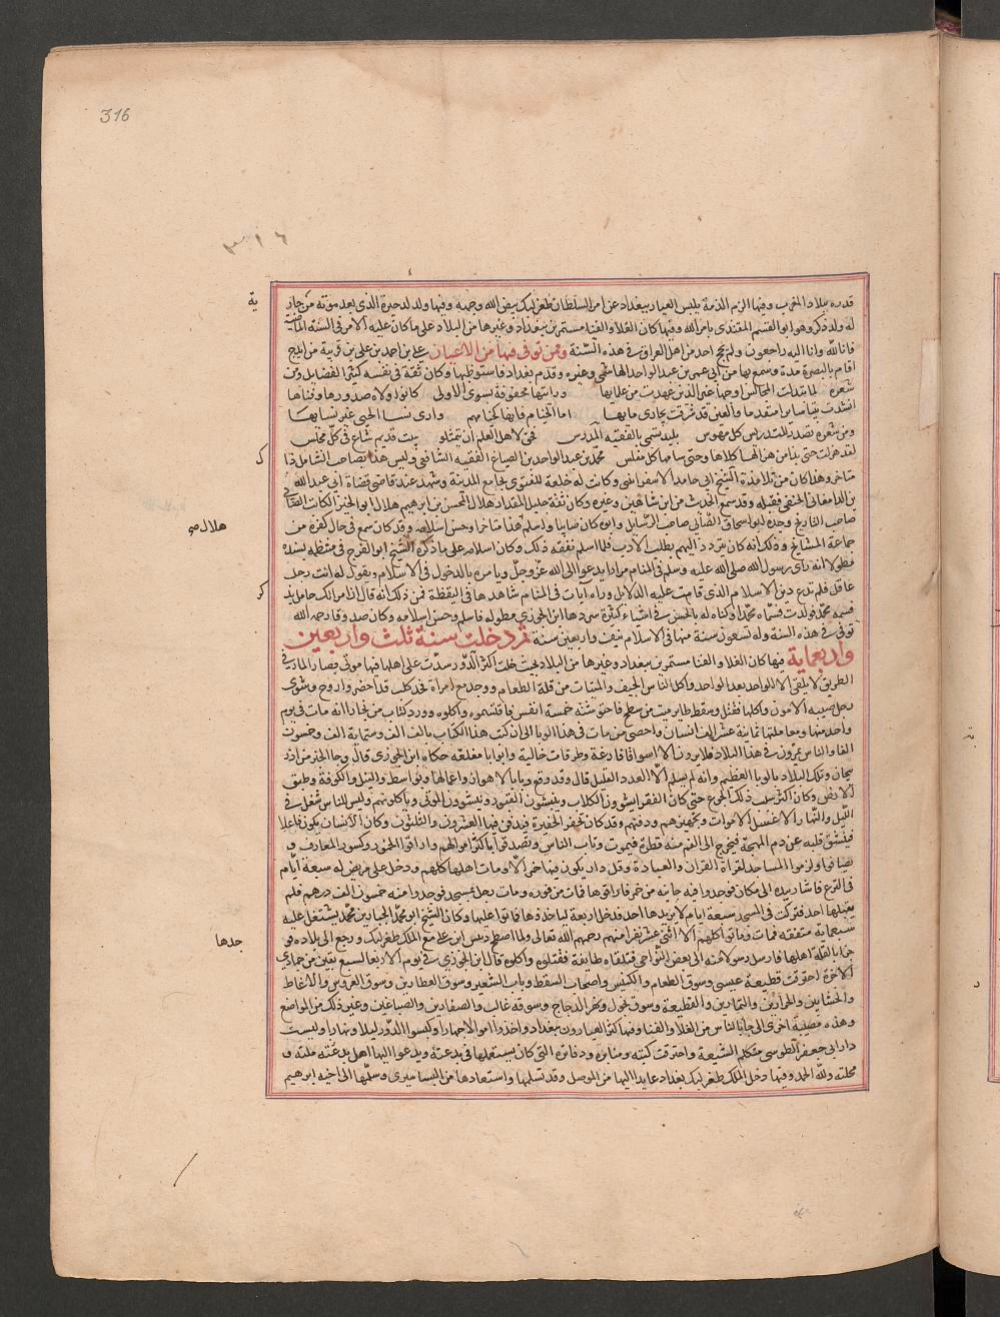 316
٣١٦
ية
قدره ببلاد المغرب وفيها الزم الذمة بلبس الغيار ببغداد عن امر السلطان طغرلبك بيض الله وجهه وفيها ولد لذخيرة الذى بعد موته من جارية
له ولد ذكر وهو ابو القسم المقتدى بامر الله وفيها كان الغلا والفنا مستمرين ببغداد وغيرها من البلاد على ما كان عليه الامر فى السنة الماضية
فانا لله وانا اليه راجعون ولم يحج احد من اهل العراق فى هذه السنة وممن توفى فيها من الاعيان على بن احمد بن على بن
اقام بالبصرة مدة وسمع بها من ابى عمر بن عبد الواحد الهاشمى وغيره وقدم بغداد فاستوطنها وكان ثقة فى نفسه كثير الفضايل ومن
شعره لما تبدلت المجالس اوجها غير الذين عهدت من علمايها ورايتها محفوفة بسوى الاولى كانوا ولاة صدورها وفنايها
انشدت بيتا سايرا متقدما والعين قد شرقت بجارى مايها اما الخيام فانها كخيامهم وارى نسا الحى غير نسايها
ومن شعره تصدر للتدريس كل مهوس بليد تسمى بالفقيه المدرس فحق لاهل العلم ان يتمثلوا ببيت قديم شاع فى كل مجلس
لقد هزلت حتى بدا من هزالها كلاها وحتى سامها كل مفلس محمد بن عبد الواحد بن الصباغ الفقيه الشافعى وليس هذا بصاحب الشامل ذا
متاخر وهذا كان من تلامذة الشيخ ابى حامد الاسفراينى وكانت له حلقة للفتوى بجامع المدينة وشهد عند قاضى قضاة ابى عبد الله
بن الدامغانى الحنفى فقبله وقد سمع الحديث من ابن شاهين وغيره وكان ثقة جليل المقدار هلال بن المحسن بن ابرهيم هلال ابو الخير الكاتب الصابى
صاحب التاريخ وجده ابو اسحاق الصابى صاحب الرسايل وابوه كان صابيا واسلم هذا متاخرا وحسن اسلامه وقد كان سمع فى حال كفره من
جماعة المشايخ وذلك انه كان يتردد اليهم يطلب الادب فلما اسلم نفعه ذلك وكان اسلامه على ما ذكره الشيخ ابو الفرج فى منتظمه بسنده
مطولا انه راى رسول الله صلى الله عليه وسلم فى المنام مرارا يدعوا الى الله عز وجل ويامره بالدخول فى الاسلام ويقول له انت رجل
عاقل فلم تدع دين الاسلام الذى قامت عليه الدلايل وراه ايات فى المنام شاهدها فى اليقظة فمن ذلك انه قال ان امراتك حامل بذ
فسمه محمد فولدت فسماه محمد او كناه له بالحسن فى اشياء كثيرة سردها ابن الجوزى مطولة فاسلم وحسن اسلامه وكان صدوقا رحمه الله
توفى فى هذه السنة وله تسعون سنة منها فى الاسلام نيف واربعين سنة ثم دخلت سنة ثلث واربعين
واربعماية فيها كان الغلا والفنا مستمرين ببغداد وغيرها من البلاد بحيث خلت اكثر الدور وسدت على اهلها فيها موتى وصار المار فى
الطريق لا يلقى الا الواحد بعد الواحد واكل الناس الجيف والميتات من قلة الطعام ووجد مع امراة فخد كلب قد احضر واروح وشوى
رجل صبيه الامون واكلها فقتل وسقط طاير ميت من سطح فاحتوشته خمسة انفس فاقتسموه واكلوه وورد كتاب من بخارا انه مات فى يوم
واحد منها ومعاملتها ثمانية عشر الف انسان واحصى من مات فى هذا الوبا الى ان كتب هذا الكتاب بالف الف وستماية الف وخمسون
الفا والناس يمرون فى هذا البلاد فلا يرون الا اسواقا فارغة وطرقات خالية وابوابا مغلقه حكاه ابن الجوزى قال وجا الخبر من اذر
بيجان وتلك البلاد بالوبا العظيم وانه لم يسلم الا العدد القليل قال ووقع وبا بالاهواز واعمالها وبواسط والنيل والكوفة وطبق
الارض وكان اكثر سبب ذلك الجوع حتى كان الفقرا يشوون الكلاب وينبشون القبور ويشوون الموتى وياكلونهم وليس للناس شغل فى
الليل والنهار الا غسل الاموات وتجهيزهم ودفنهم وقد كان تحفر الحفيرة فيدفن فيها العشرون والثلثون وكان الانسان يكون قاعدا
فينشق قلبه عن دم المهجة فيخرج الى الفم منه قطرة فيموت وتاب الناس وتصدقوا باكثر اموالهم واراقوا الخمور وكسروا المعازف و
تصافوا ولزموا المساجد لقراة القران والعبادة وقل دار يكون فيها خمر الا ومات اهلها كلهم ودخل على مريض له سبعة ايام
فى النزع فاشار بيده الى مكان فوجدوا فيه خابية من خمر فاراقوها فمات من فوره ومات رجل بمسجد فوجدوا معه خمسون الف درهم فلم
يقبلها احد فتركت فى المسجد تسعة ايام لا يريدها احد فدخل اربعة لياخذوها فماتوا عليها وكان الشيخ ابو محمد الجبار بن محمد يشتغل عليه
سبعماية متفقه فمات وماتوا كلهم الا اثنى عشر نفرا منهم رحمهم الله تعالى ولما اصطلح دبيس ابن على مع الملك طغرلبك ورجع الى بلاده فو
خرابا لقلة اهلها فارسل رسولا منه الى بعض النواحى فتلقاه طايفة فقتلوه واكلوه قال ابن الجوزى فى يوم الاربعا لسبع بقين من جمادى
الاخرة احترقت قطيعة عيسى وسوق الطعام والكنيس واصحاب السقط وباب الشعير وسوق العطارين وسوق العروس والانماط
والخشابين والجزارين والتمارين والقطيعة وسوق مخول ونهر الدجاج وسويقة غالب والصفارين والصباغين وغير ذلك من المواضع
وهذه مصيبة اخرى الى ما بالناس من الغلا والفنا وفيها كثر العيارون ببغداد واخذوا اموالا جهارا وكبسوا الدور ليلا ونهارا وكبست
دار ابى جعفر الطوسى متكلم الشيعة واحترقت كتبه ومنابره ودفاتره التى كان يستعملها فى بدعته ويدعوا اليها اهل بدعته ملته و
محلته ولله الحمد وفيها دخل الملك طغرلبك بغداد عايدا اليها من الموصل وقد تسلمها واستعادها من البساسيرى وسلمها الى اخيه ابرهيم
هلال صح
جدها